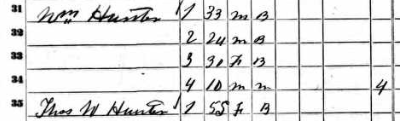 31 Wm Hunter 1 33 m B
32 2 24 m B
33 3 30 F B
34 4 10 m m 4
35 Thos W Hunter 1 55 F B